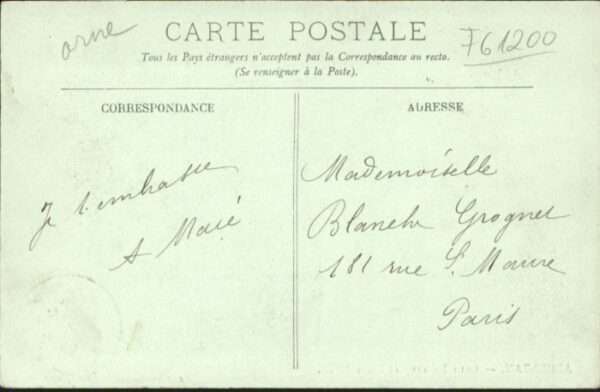 orne
CARTE POSTALE
F61200
Tous les Pays étrangers n'acceptent pas la Correspondance au recto.
(Se renseigner à la Poste).
CORRESPONDANCE
ADRESSE
Je t'embrasse
Mademoiselle
Blanche Grognet
181 rue S. Maure
Paris